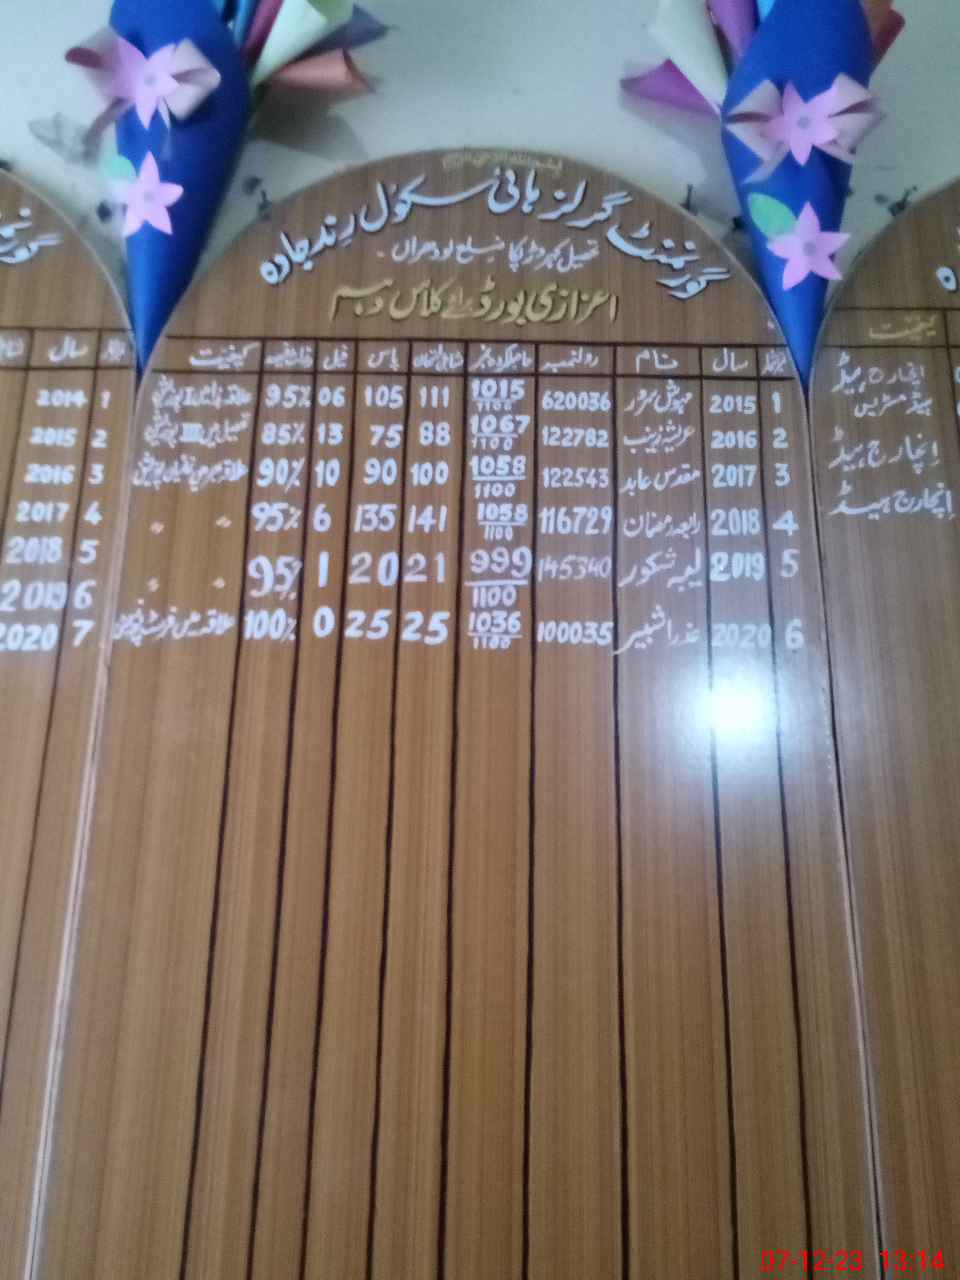 گورنمنٹ گرلز ہائی سکول رند جادہ
تحصیل کہروڑپکا ضلع لودھراں
اعزازی بورڈ برائے کلاس دہم
سال نام رولنمبر پاس فیل کیفیت
1 2015 مہوش سرور 620036 1015/1100 111 105 06 95% علاقہ
2 2016 عریشہ زینب 122782 1067/1100 88 75 13 85% تحصیل میں III پوزیشن
3 2017 مقدس عابد 122543 1058/1100 100 90 10 90% علاقہ
4 2018 رابعہ رمضان 116729 1058/1100 141 135 6 95% 〃 〃
5 2019 لیبہ شکور 145340 999/1100 21 20 1 95% 〃 〃
6 2020 عذرا شبیر 100035 1036/1100 25 25 0 100% علاقہ میں فرسٹ پوزیشن
سال
1 2014
2 2015
3 2016
4 2017
5 2018
6 2019
7 2020
کیفیت
انچارج ہیڈ
ہیڈ مسٹریس
اِنچارج ہیڈ
اِنچارج ہیڈ
07-12-23 13:14